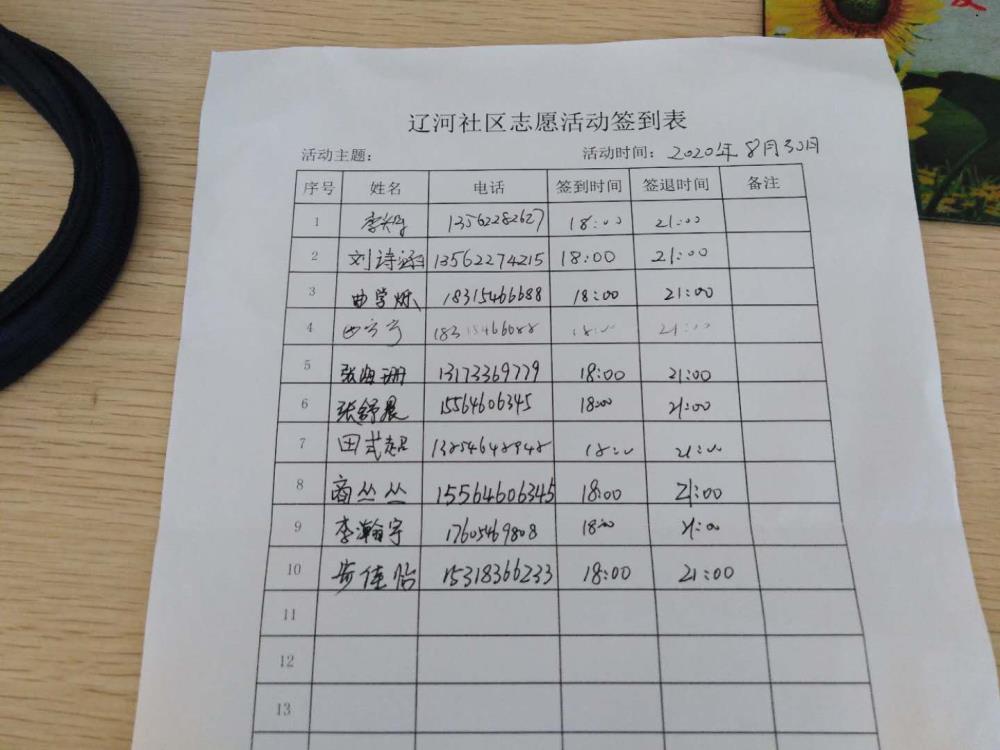 辽河社区志愿活动签到表
活动主题： 活动时间：2020年8月30日
序号 姓名 电话 签到时间 签退时间 备注
1 李 13562282627 18:00 21:00
2 刘诗涵 13562274215 18:00 21:00
3 曲学烁 18315466688 18:00 21:00
4 18:00 21:00
5 张海珊 13173369779 18:00 21:00
6 张舒晨 15564606345 18:00 21:00
7 田式起 13854648948 18:00 21:00
8 商丛丛 15564606345 18:00 21:00
9 李瀚宇 17605469808 18:00 21:00
10 佳怡 15318366233 18:00 21:00
11
12
13